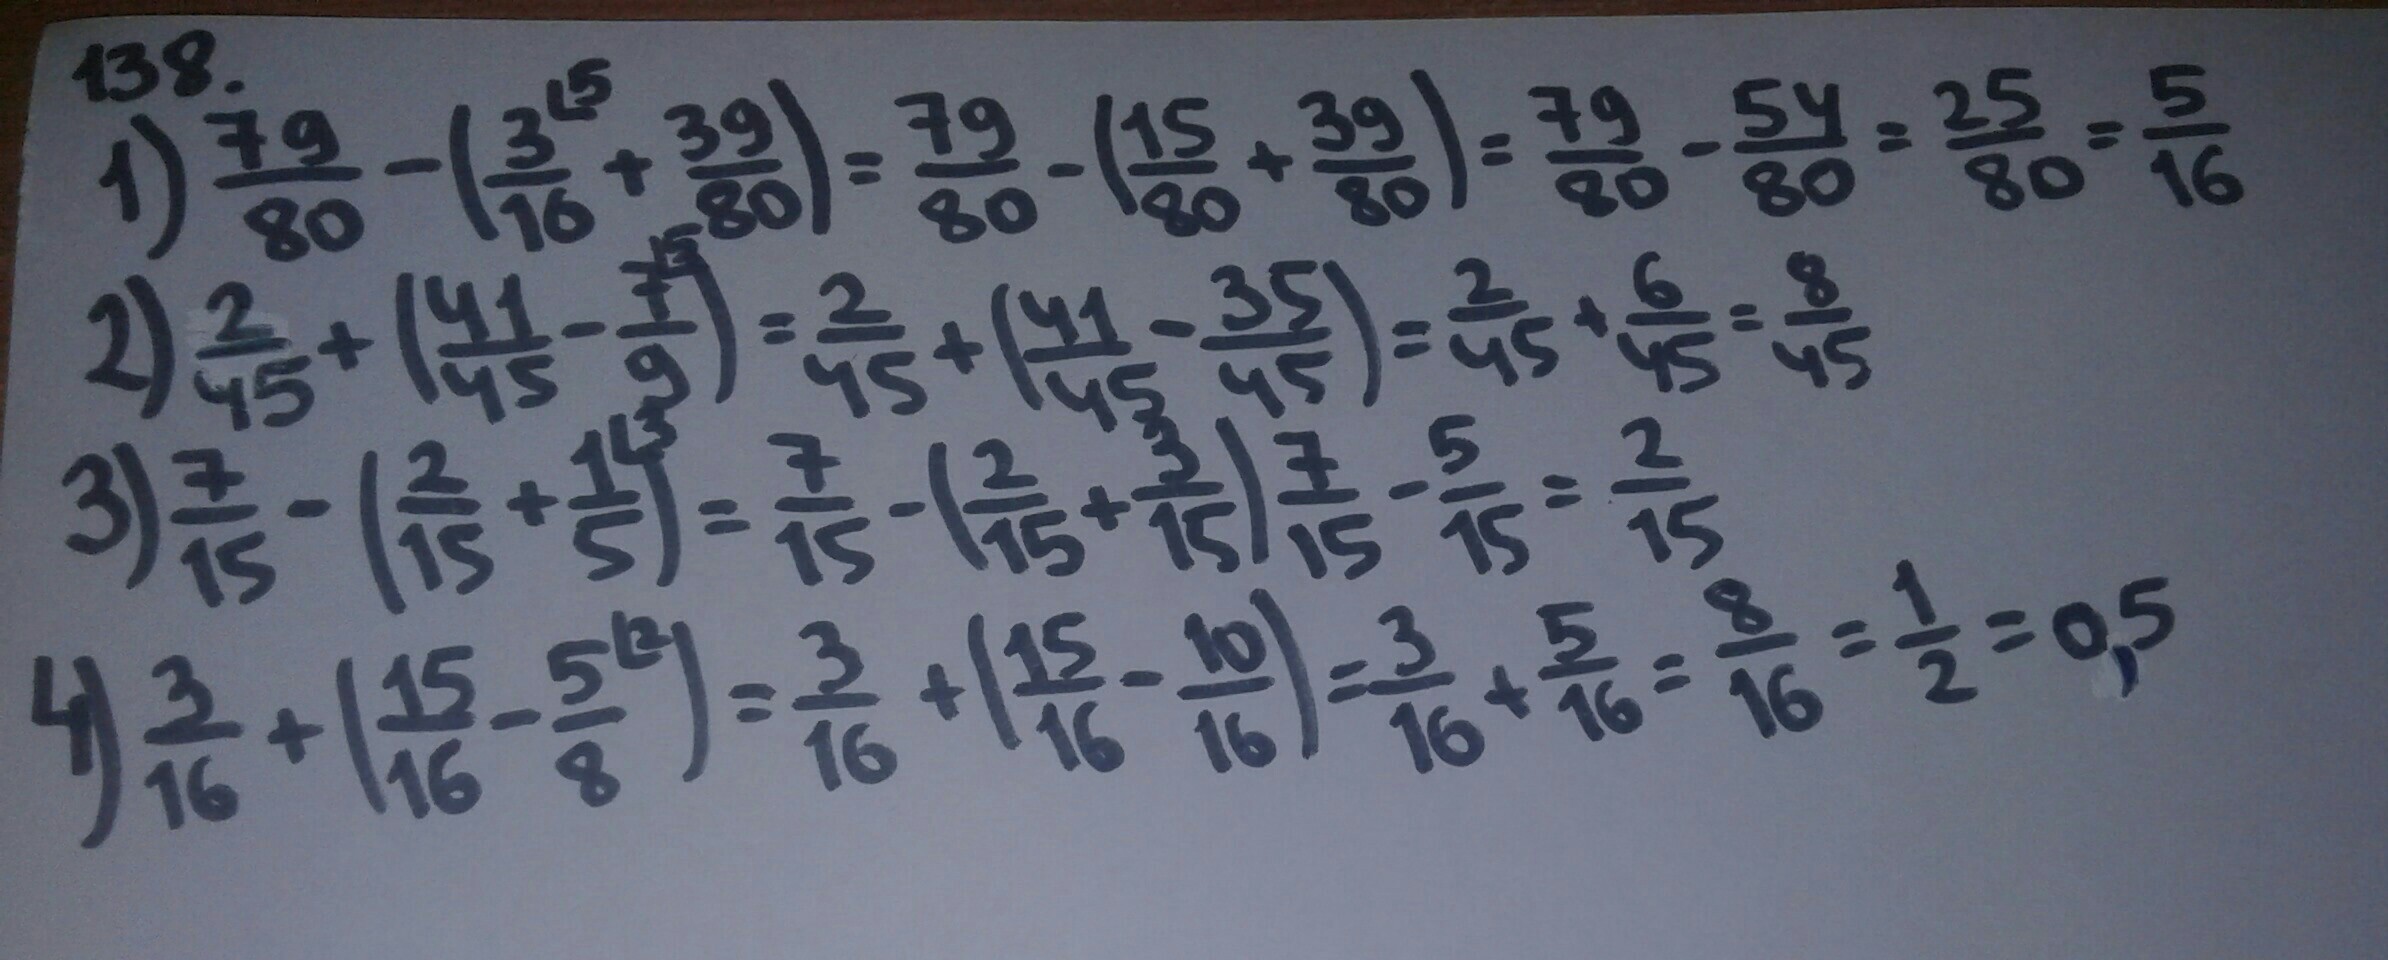 138.
1) 79/80 - (3/16 ⌊5 + 39/80) = 79/80 - (15/80 + 39/80) = 79/80 - 54/80 = 25/80 = 5/16
2) 2/45 + (41/45 - 7/9 ⌊5) = 2/45 + (41/45 - 35/45) = 2/45 + 6/45 = 8/45
3) 7/15 - (2/15 + 1/5 ⌊3) = 7/15 - (2/15 + 3/15) 7/15 - 5/15 = 2/15
4) 3/16 + (15/16 - 5/8 ⌊2) = 3/16 + (15/16 - 10/16) = 3/16 + 5/16 = 8/16 = 1/2 = 0,5